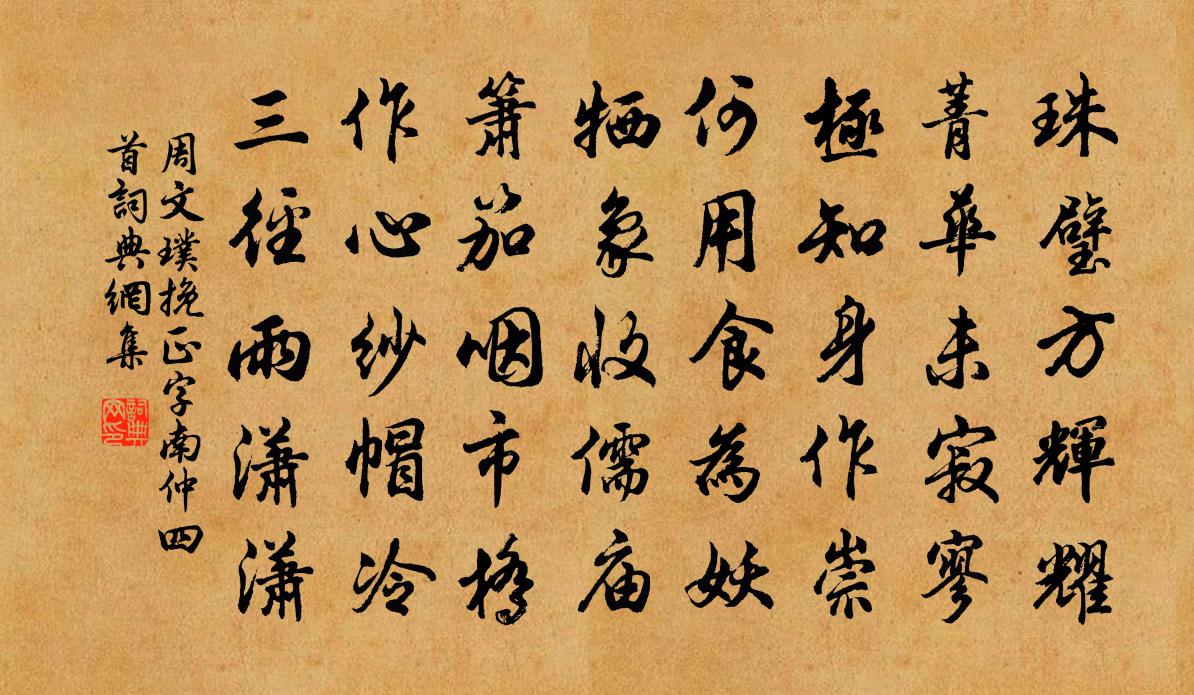 珠璧方輝耀
菁華未寂寥
極知身作崇
何用食為妖
牺象收儒庙
簫笳咽市橋
作心紗帽冷
三徑雨瀟瀟
周文璞挽正字南仲四
首詞典網集
詞典網印